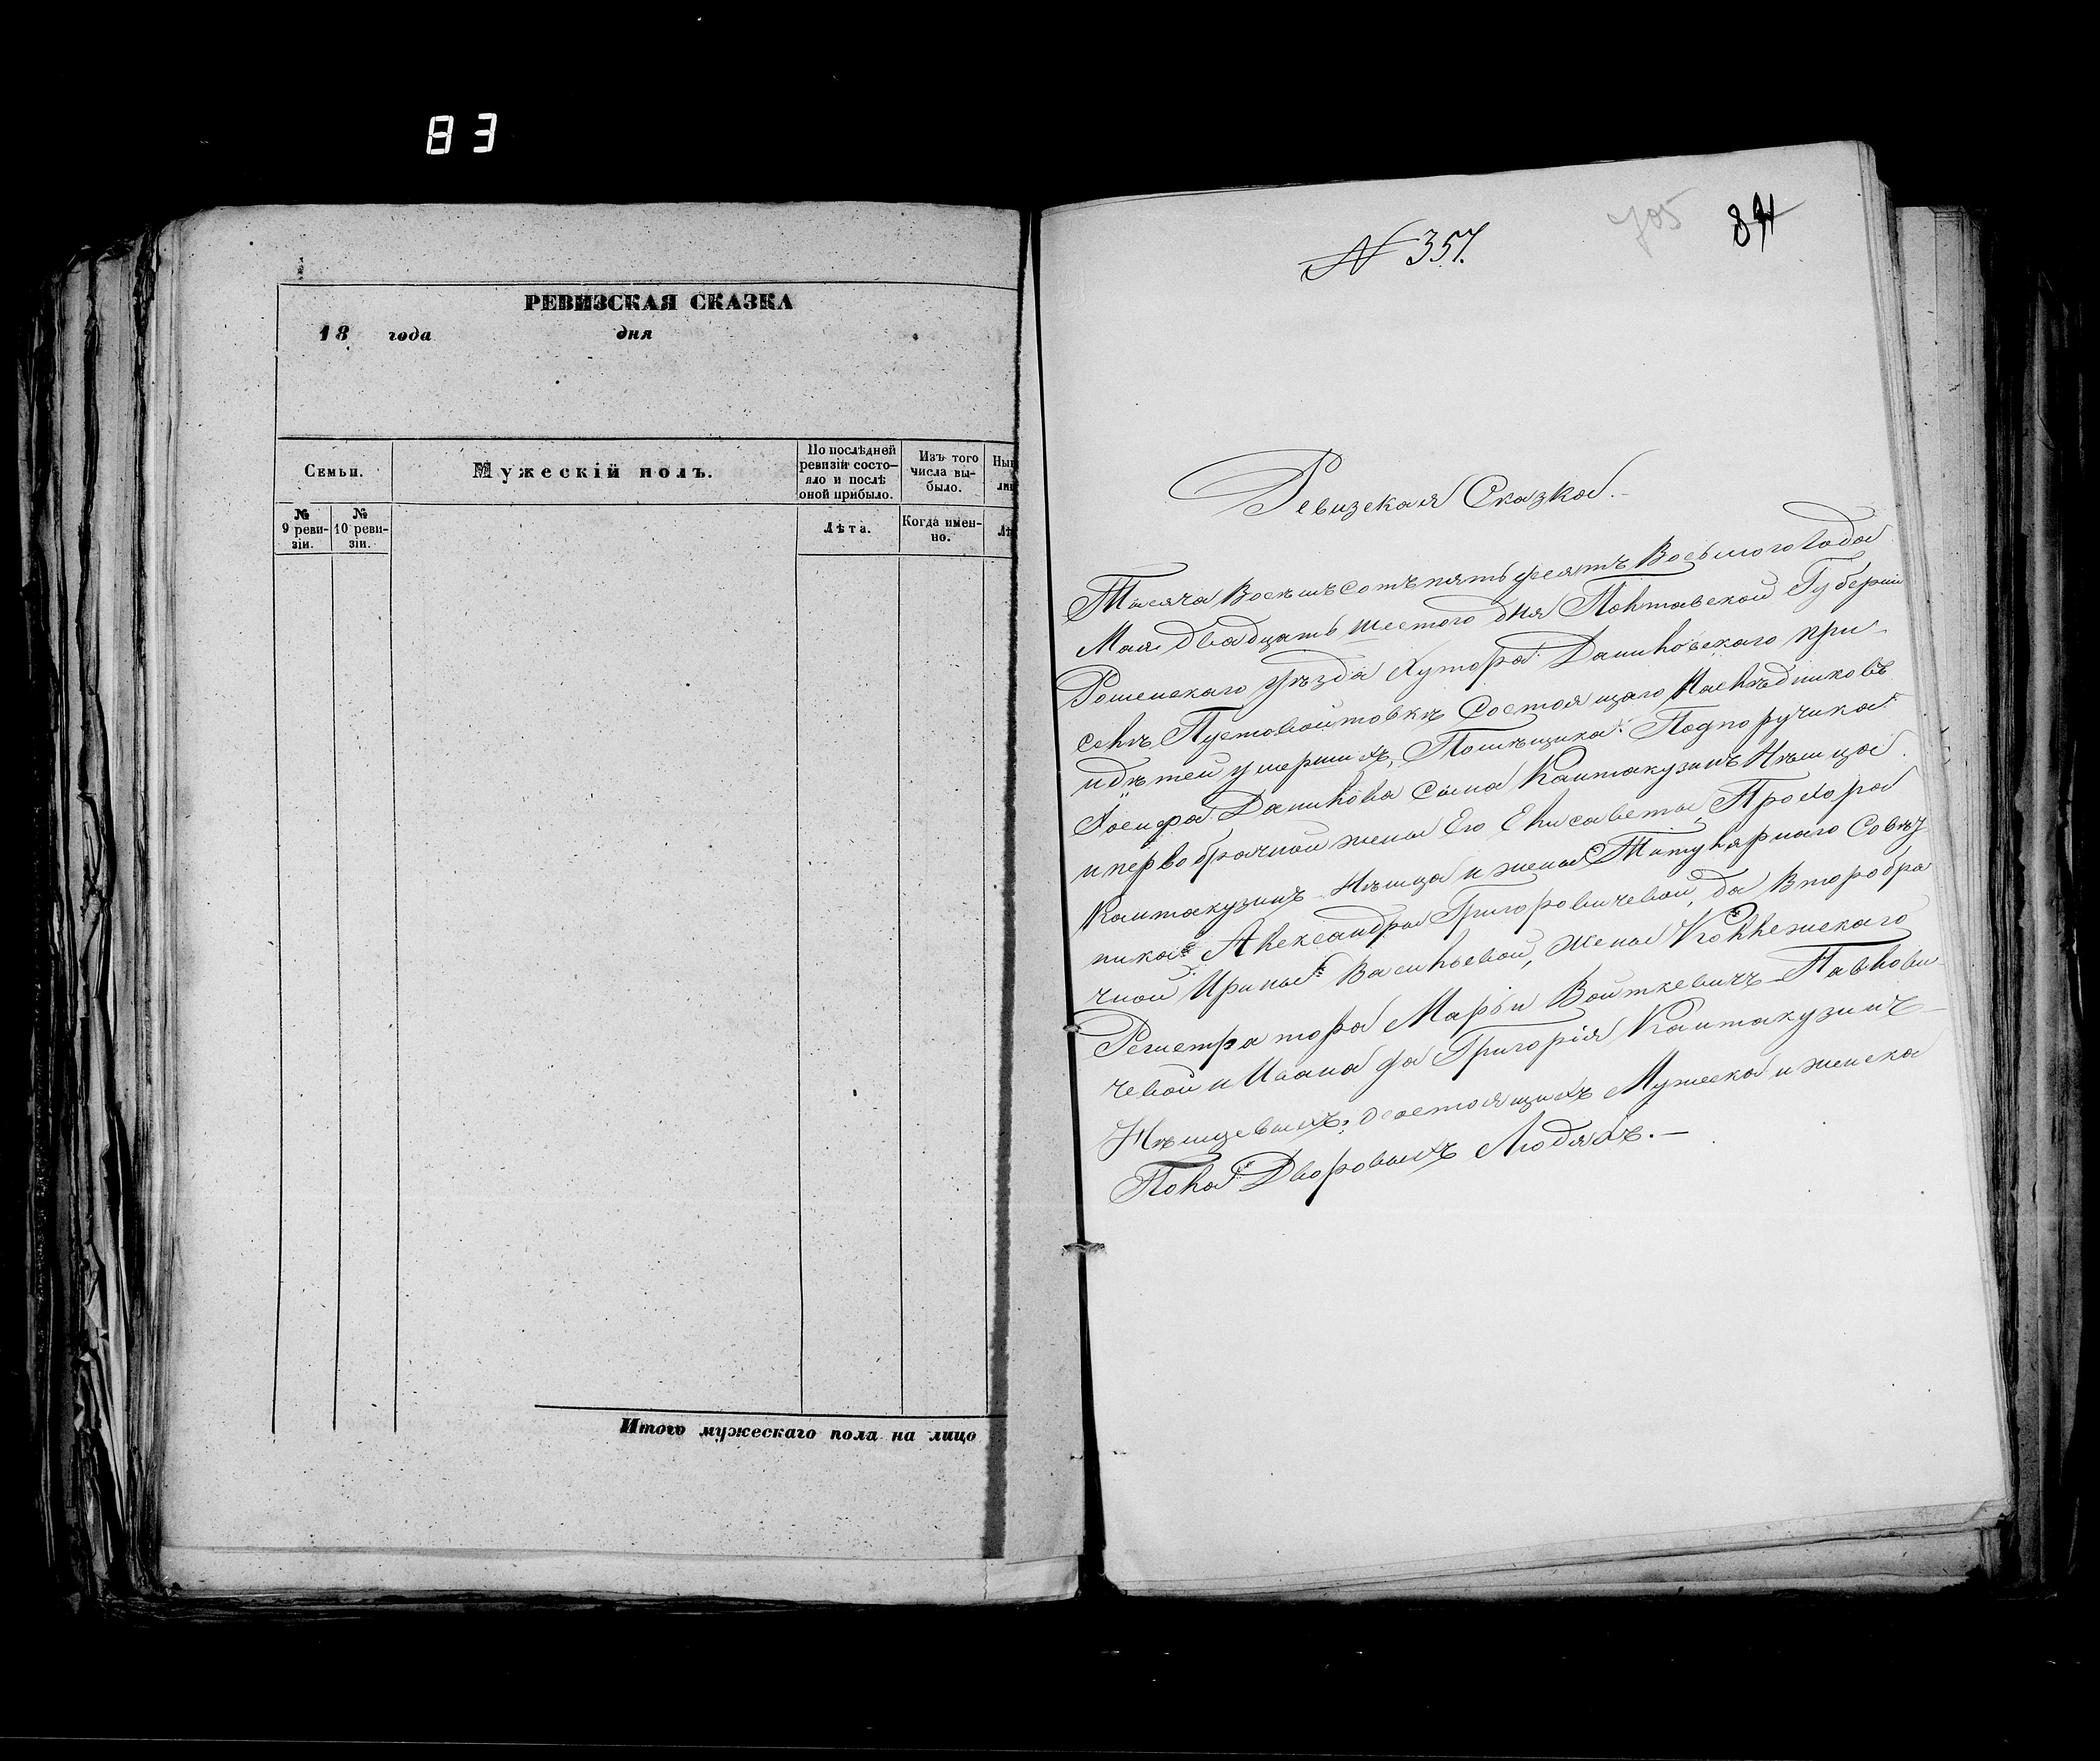 83
РЕВИЗСКАЯ СКАЗКА
18 года дня
Семьи.
Мужескій полъ.
По послѣдней
ревизіи состо-
яло и послѣ
оной прибыло.
Изъ того
числа вы-
было.
№
9 реви-
зіи.
№
10 реви-
зіи.
Лѣта.
Когда имен-
но.
Итого мужескаго пола на лицо
705 841
N 357.
Ревизская Сказка.-
Тысяча Восемьсотъ пятьдесятъ Восьмого Года
Мая двадцать шестого дня Полтавской Губерніи
Роменскаго уѣзда Хутора Даниловскаго при
селѣ Пустовойтовкѣ Состоящаго Наслѣдниковъ
и дѣтей умершихъ, Помѣщика: Подпоручика
Іосифа Данилова Сына Кантакузинъ Нѣмца
и первобрачной жены Его Елисаветы, Прохора
Кантакузинъ Нѣмца и жены Титулярнаго Совѣт
ника Александры Григоровичевой, да Второбра
чной Ирины Васильевой, жены Коллежскаго
Регистратора Марьи Войткевичъ-Павлови
чевой и Ивана да Григорія Кантакузинъ-
Нѣмцевыхъ, о состоящихъ Мужеска и женска
Пола Дворовыхъ Людяхъ.-